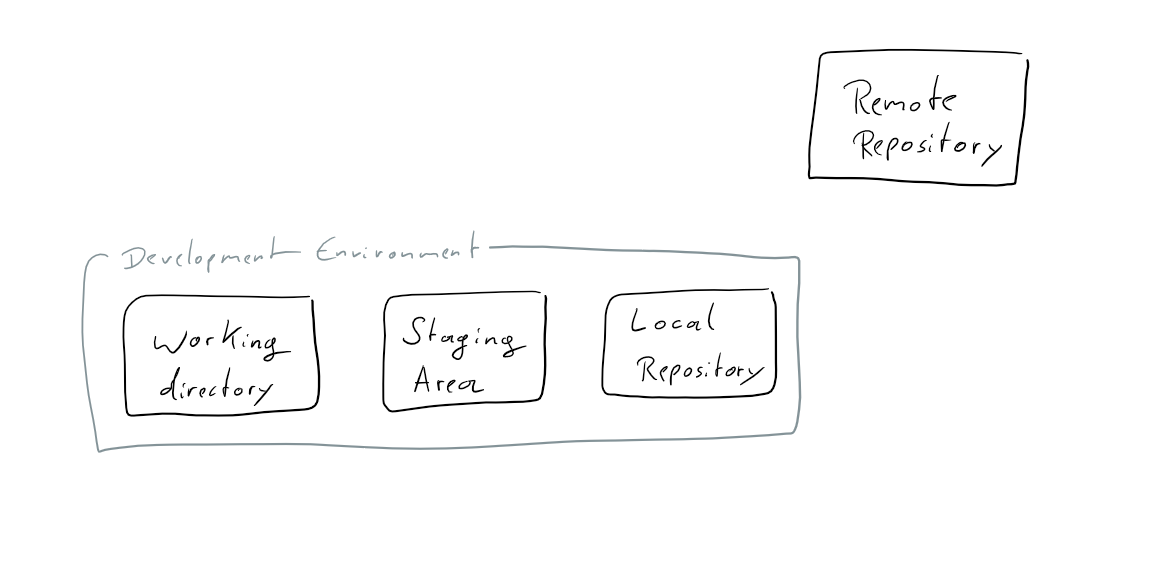 Remote
Repository
Development Environment
Working
directory
Staging
Area
Local
Repository